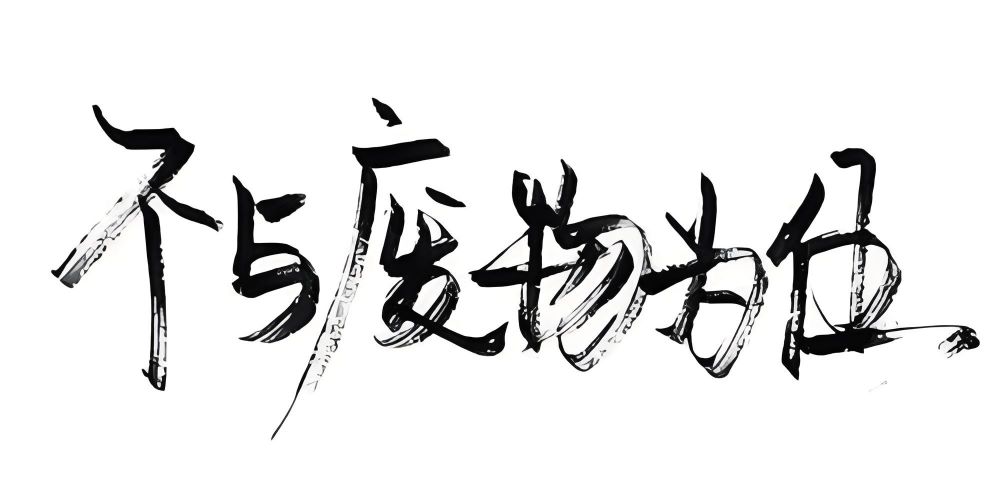 不与废物为伍